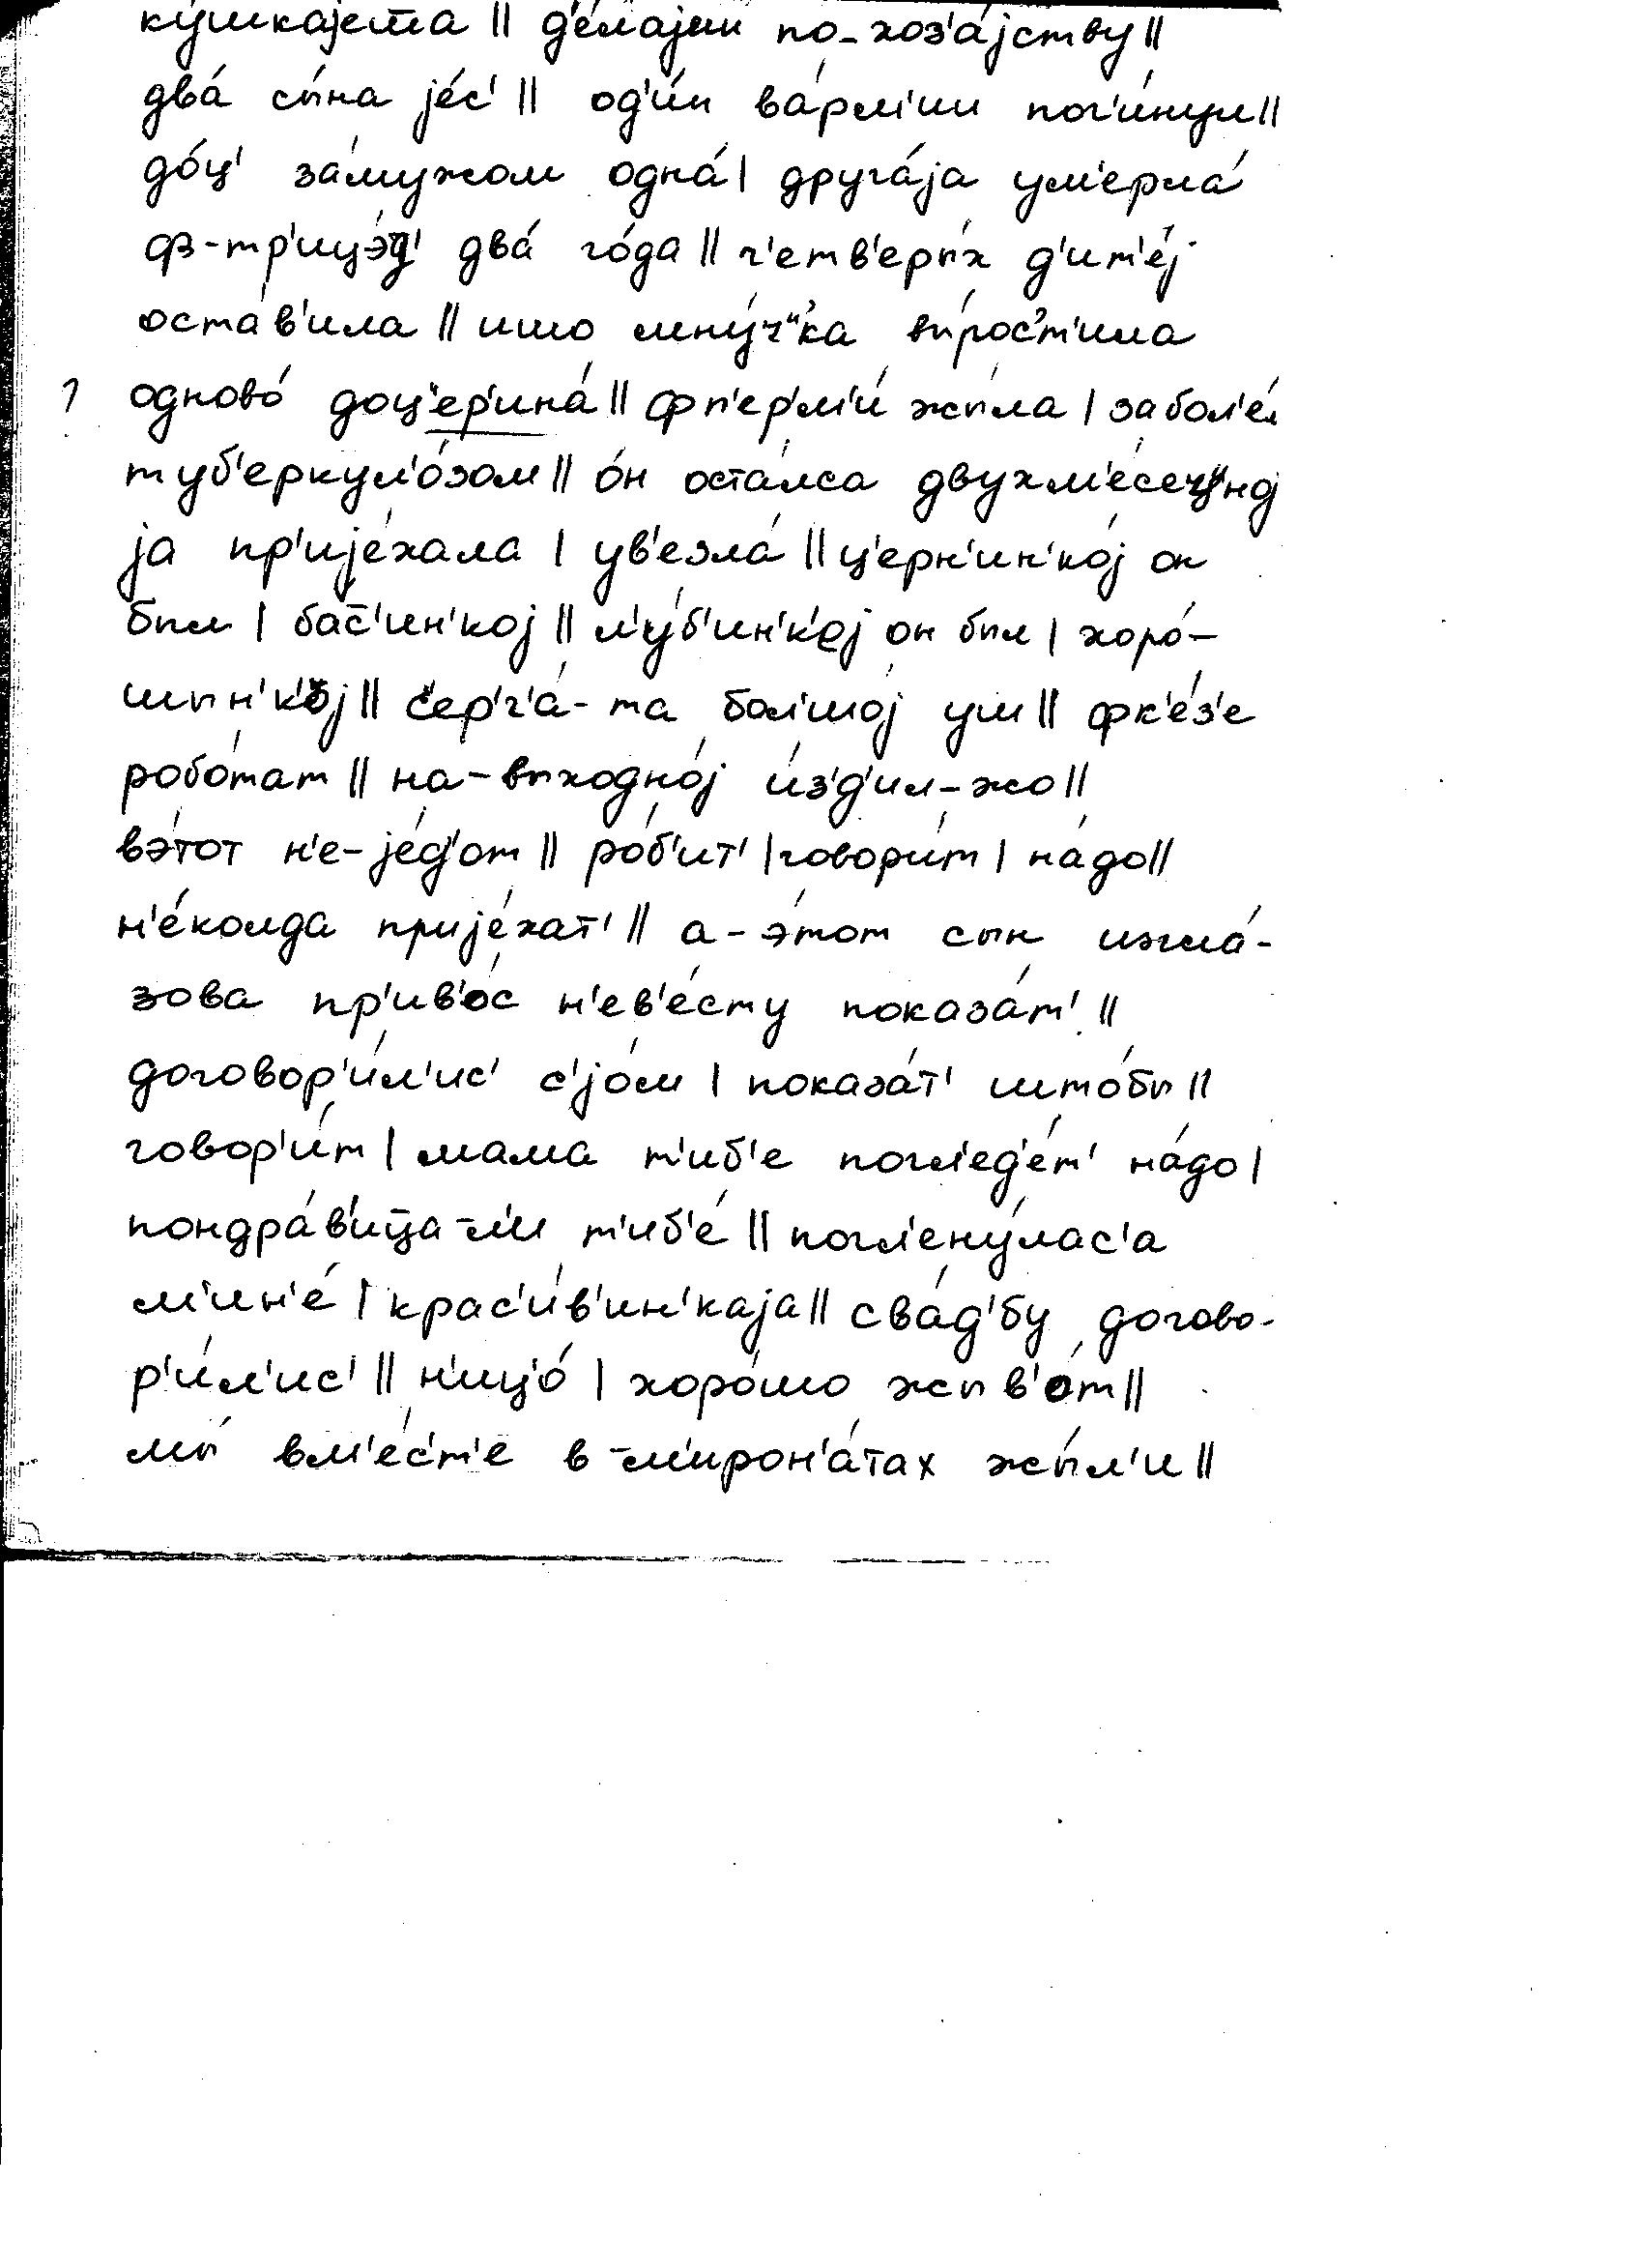 ку́шкајета || д'е́лајии по-хоз'а́јству ||
два́ сы́на је́с' || од'и́н ва́рм'ии пог'и́нул ||
до́ц' за́мужом одна́ | друга́ја ум'ерла́
фз-тр'ицэ́д' два́ го́да || ч'етв'еры́х д'ит'е́ј
оста́в'ила || ишо мну́ч'ка вы́рос'т'ила
одново́ доц'ер'ина́ || фп'ер'м'и́ жы́ла | забол'е́л
туб'еркул'о́зом || о́н оста́лса двухм'е́сеч'ној
ја пр'ије́хала | ув'езла́ || ц'ерн'ин'ко́ј он
был | бас'ин'кој || л'у́б'ин'к'ој он был | хоро́-
шын'к'ој || с'ер'г'а́-та бол'шо́ј уш || фк'е́з'е
робо́тат || на-выходно́ј и́з'д'ил-жо ||
вэ́тот н'е-је́д'от || ро́б'ит' | говори́т | на́до ||
н'е́колда прије́хат' || а-э́тот сын ижгла́-
зова пр'ив'о́с н'ев'е́сту показа́т' ||
договор'и́л'ис' с'јо́м | показа́т' што́бы ||
говор'и́т | мама т'иб'е погл'ед'е́т' на́до |
пондра́в'ица-л'и т'иб'е́ || погл'ену́лас'а
м'ин'е́ | крас'и́в'ин'каја || сва́д'бу догово-
р'и́л'ис' || н'иц'о́ | хоро́шо жыв'о́т ||
мы́ вм'е́с'т'е в-м'ирон'а́тах жы́л'и ||